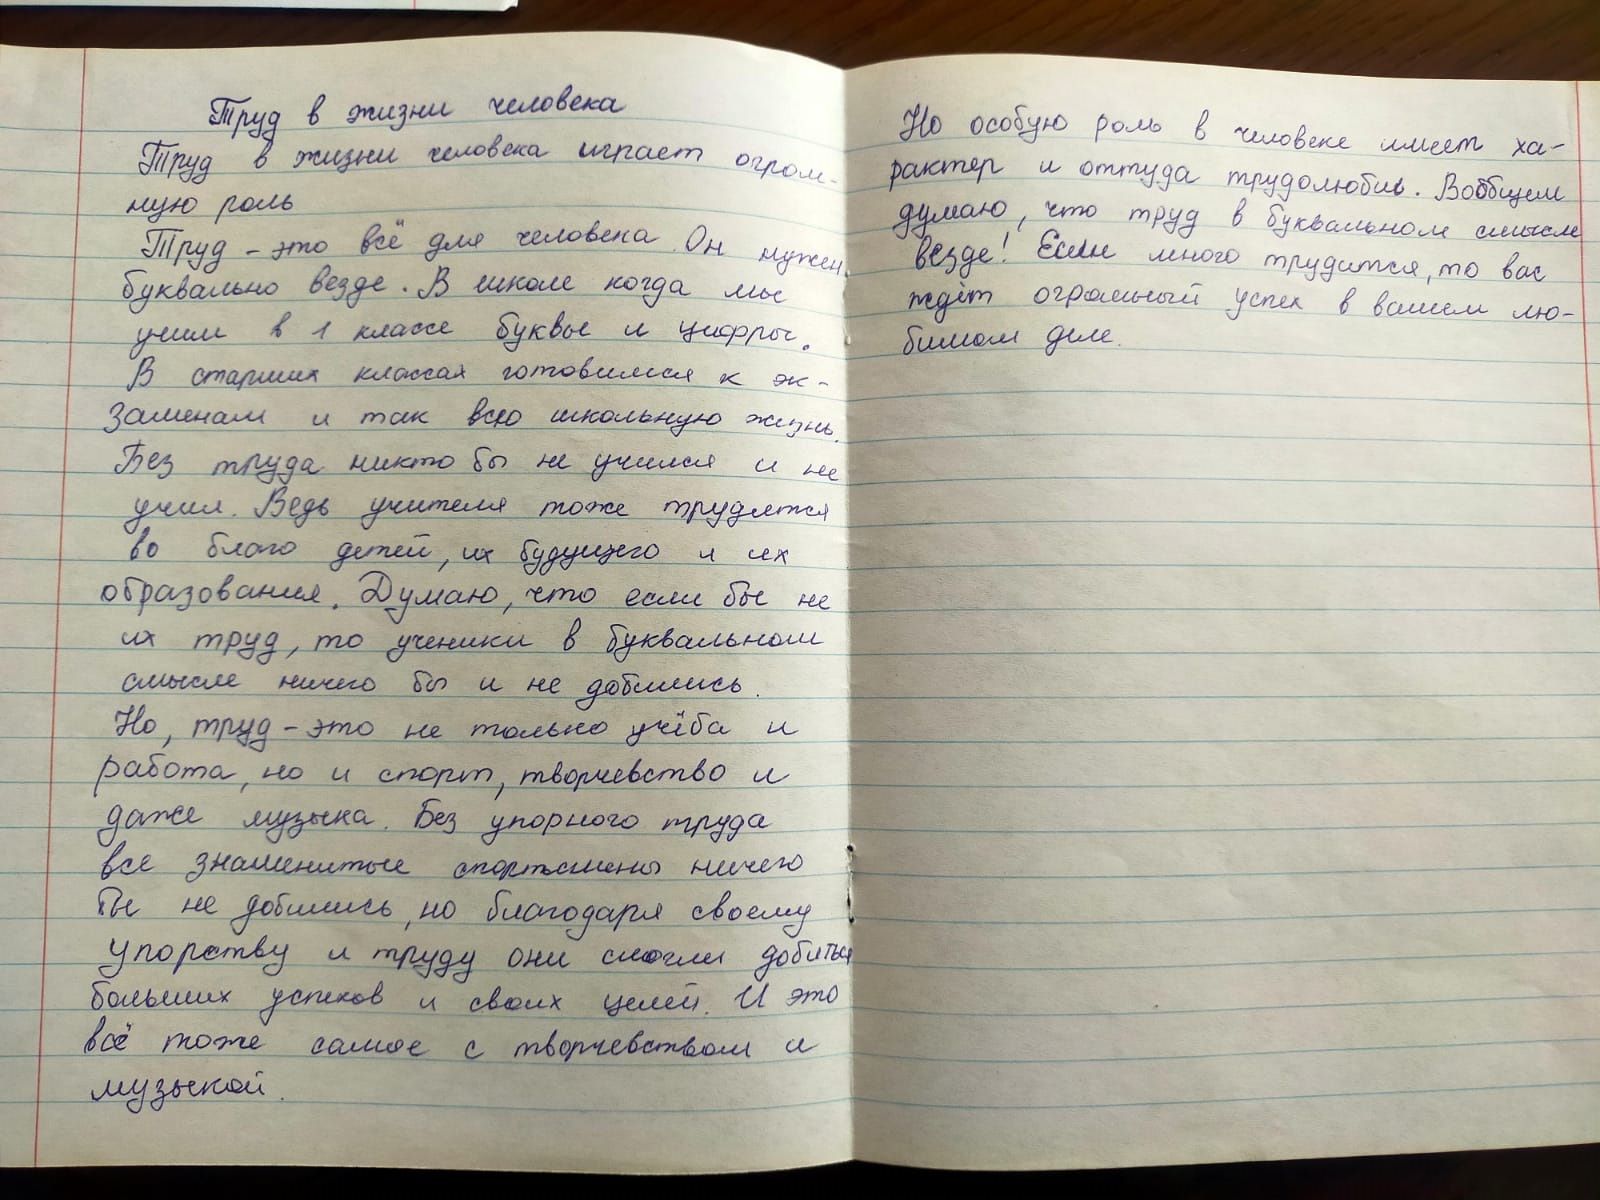 Труд в жизни человека
Труд в жизни человека играет огром-
ную роль
Труд - это всё для человека. Он нужен
буквально везде. В школе когда мы
учим в 1 классе буквы и цифры.
В старших классах готовимся к эк-
заменам и так всю школьную жизнь.
Без труда никто бы не учился и не
учил. Ведь учителя тоже трудятся
во благо детей, их будущего и их
образования. Думаю, что если бы не
их труд, то ученики в буквальном
смысле ничего бы и не добились.
Но, труд - это не только учёба и
работа, но и спорт, творчевство и
даже музыка. Без упорного труда
все знаменитые спортсмены ничего
бы не добились, но благодаря своему
упорству и труду они смогли добиться
больших успехов и своих целей. И это
всё тоже самое с творчевством и
музыкой.
Но особую роль в человеке имеет ха-
рактер и оттуда трудолюбив. Вообщем
думаю, что труд в буквальном смысле
везде! Если много трудится, то вас
ждёт огромный успех в вашем лю-
бимом деле.